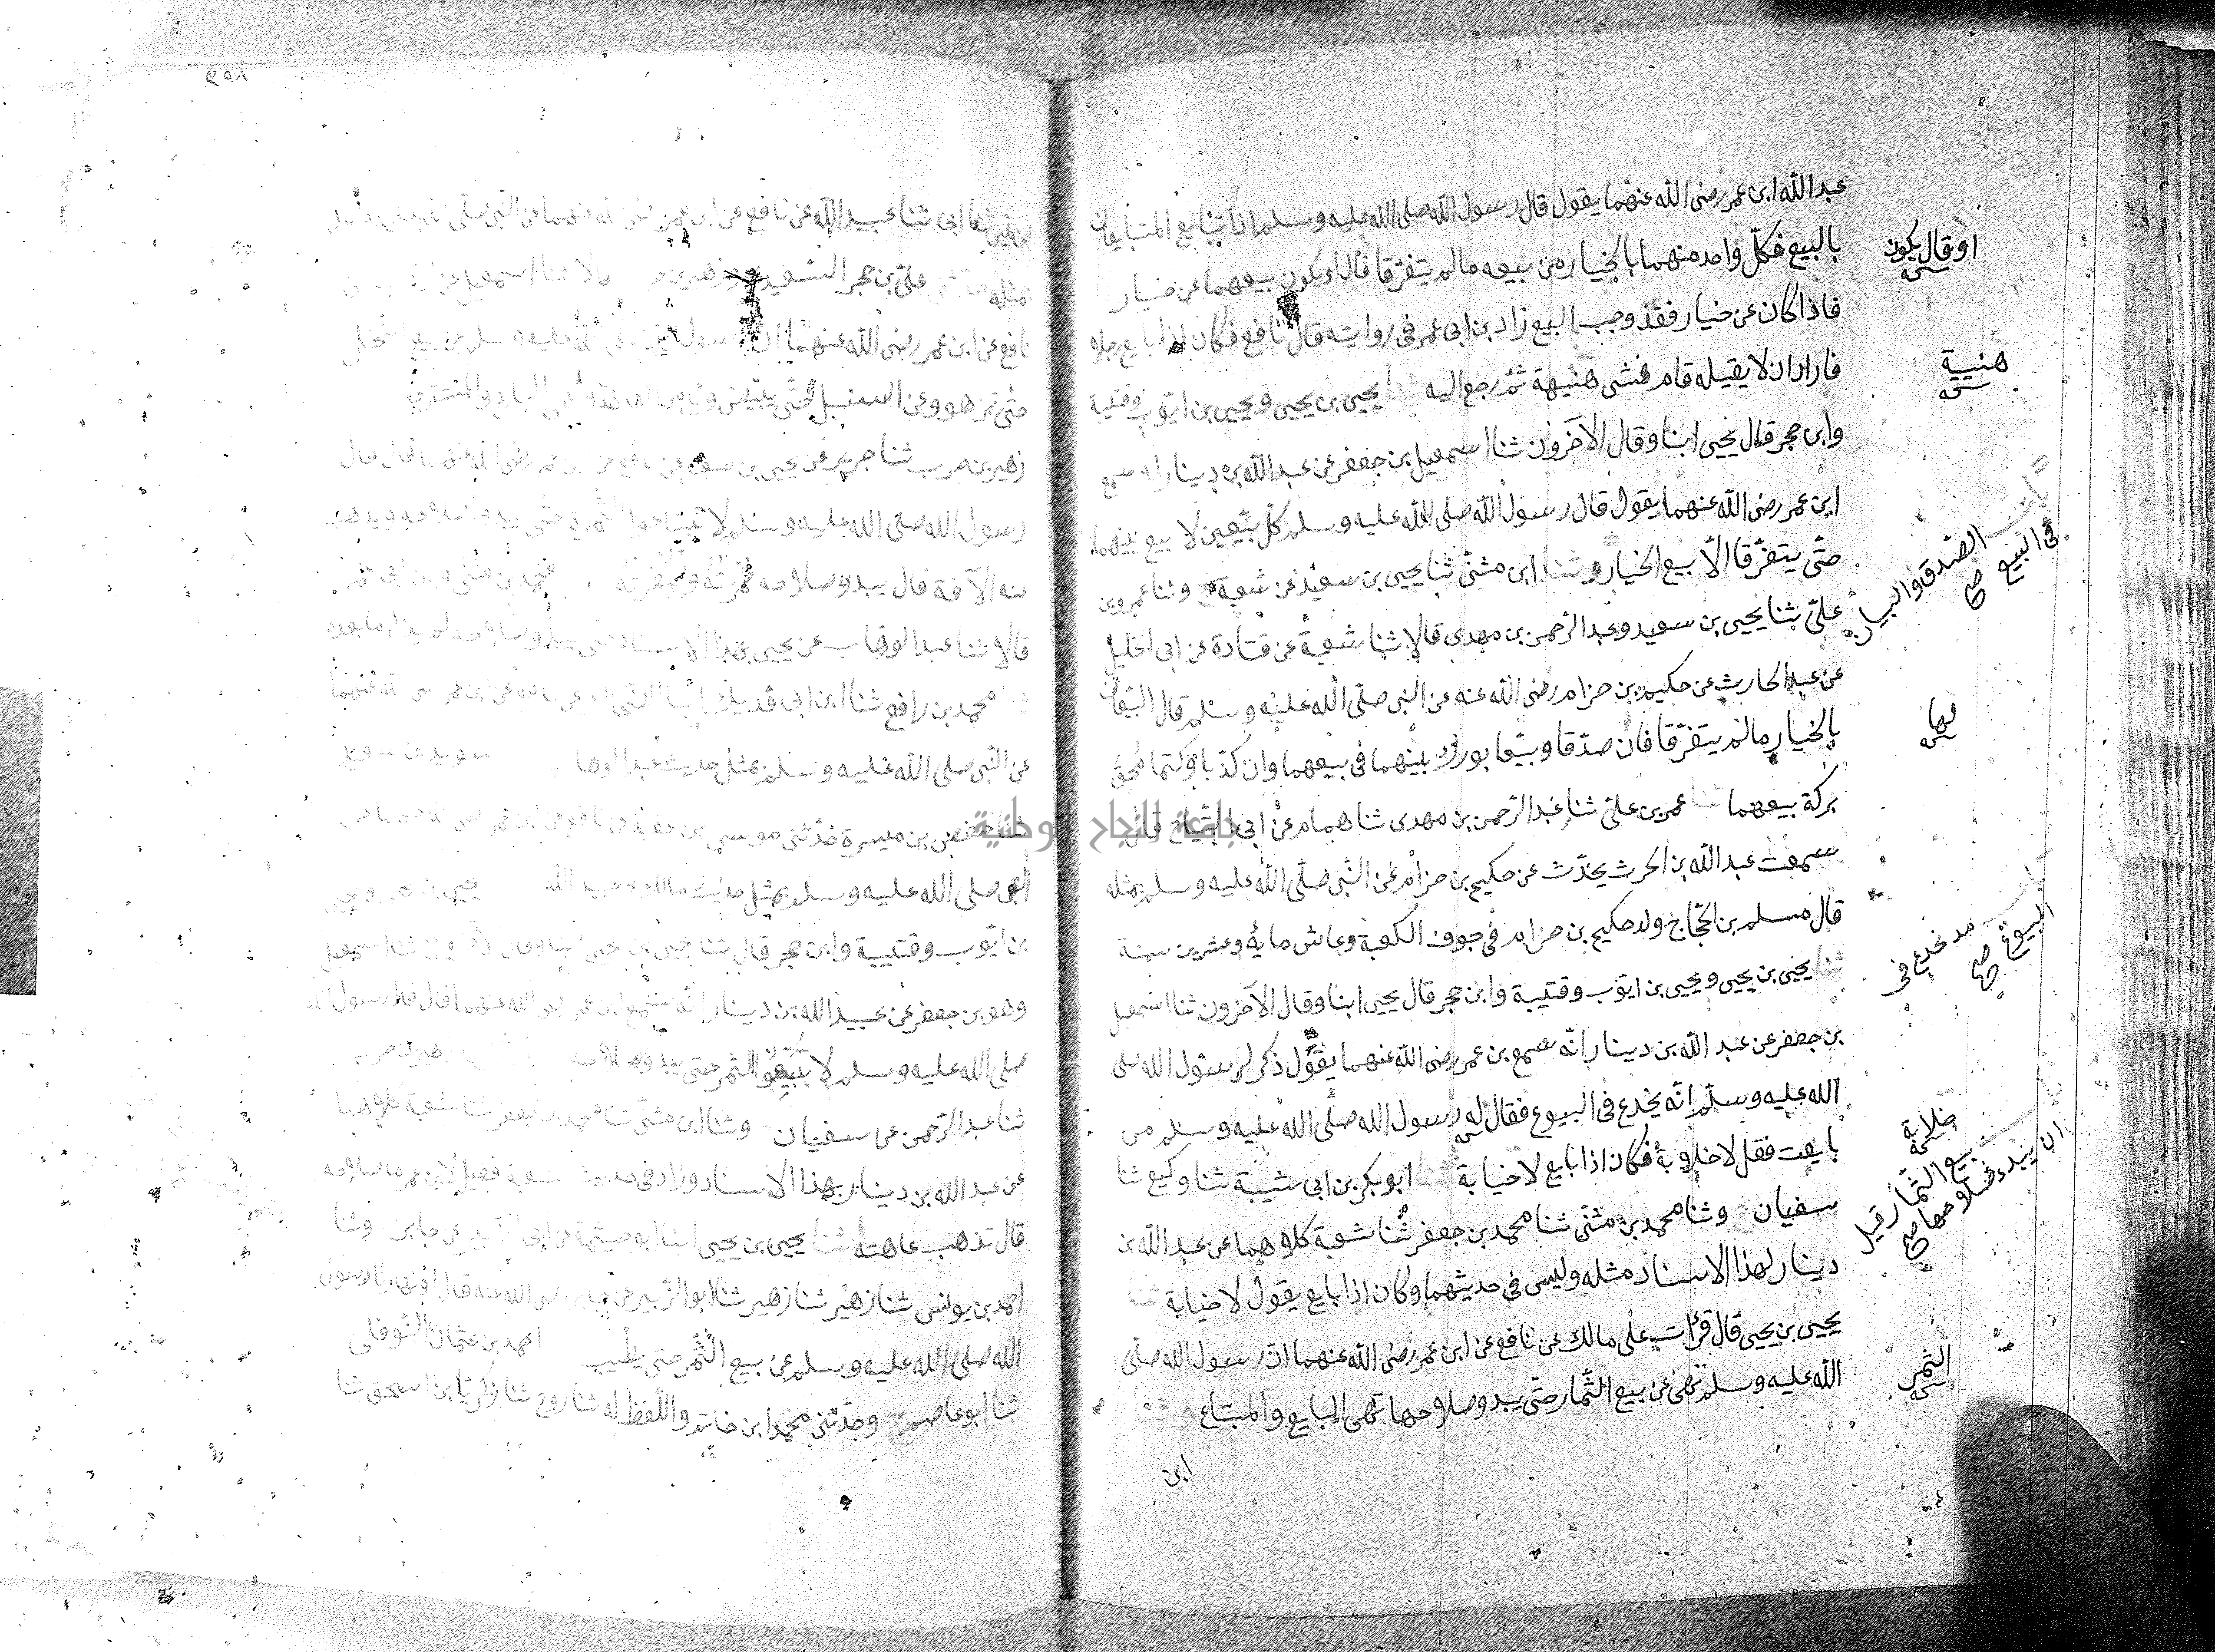 عبد الله ابن عمر رضى الله عنهما يقول قال رسول الله صلى الله عليه وسلم اذا تبايع المتبايعان
بالبيع فكل واحد منهما بالخيار من بيعه ما لم يتفرقا قال او يكون بيعهما عن خيار
او قال يكون
فاذا كان عن خيار فقد وجب البيع زاد بن ابى عمر فى روايته قال نافع فكان اذا بايع رجلا
فاراد ان لا يقيله قام فمشى هنيهة ثم رجع اليه ثنا يحيى بن يحيى ويحيى بن ايوب وقتيبة
هنيية
وابن حجر قال يحيى ابنا وقال الآخرون ثنا اسمعيل بن جعفر عن عبد الله بن دينار انه سمع
ابن عمر رضى الله عنهما يقول قال رسول الله صلى الله عليه وسلم كل بيعين لا بيع بينهما
حتى يتفرقا الا بيع الخيار وثنا ابن مثنى ثنا يحيى بن سعيد عن شعبة ح وثنا عمرو بن
باب الصدق والبيان فى البيع صح
على ثنا يحيى بن سعيد وعبد الرحمن بن مهدى قالا ثنا شعبة عن قتادة عن ابى الخليل
عن عبد الحارث عن حكيم بن حزام رضى الله عنه عن النبى صلى الله عليه وسلم قال البيعان
بالخيار ما لم يتفرقا فان صدقا وبينا بورك بينهما فى بيعهما وان كذبا وكتما محق
بركة بيعهما ثنا عمر بن على ثنا عبد الرحمن بن مهدى ثنا همام عن ابى التياح قال
سمعت عبد الله بن الحرث يحدث عن حكيم بن حزام عن النبى صلى الله عليه وسلم بمثله
قال مسلم بن الحجاج ولد حكيم بن حزام فى جوف الكعبة وعاش مايه وعشرين سنة
باب من يخدع فى البيوع صح
ثنا يحيى بن يحيى ويحيى بن ايوب وقتيبة وابن حجر قال يحيى ابنا وقال الآخرون ثنا اسمعيل
بن جعفر عن عبد الله بن دينار انه سمع بن عمر رضى الله عنهما يقول ذكر لرسول الله صلى
الله عليه وسلم انه يخدع فى البيوع فقال له رسول الله صلى الله عليه وسلم من
بايعت فقل لا خلابة فكان اذا بايع لا خيابة ثنا ابو بكر بن ابى شيبة ثنا وكيع ثنا
خلابة
سفيان وثنا محمد بن مثنى ثنا محمد بن جعفر ثنا شعبة كلاهما عن عبد الله بن
بيع الثمار قبل ان يبدء صلاحها صح
دينار لهذا الاسناد مثله وليس فى حديثهما وكان اذا بايع يقول لا خيابة ثنا
يحيى بن يحيى قال قرات على مالك عن نافع عن ابن عمر رضى الله عنهما ان رسول الله صلى
الله عليه وسلم نهى عن بيع الثمار حتى يبدو صلاحها نهى البايع والمبتاع وثنا
الثمر
ابن
ابن نمير ثنا ابى ثنا عبيد الله عن نافع عن ابن عمر رضى الله عنهما عن النبى صلى الله عليه وسلم
بمثله وحدثنى على بن حجر السعدى وزهير بن حرب قالا ثنا اسمعيل عن
نافع عن ابن عمر رضى الله عنهما ان رسول الله صلى الله عليه وسلم نهى عن بيع النخل
حتى تزهو وعن السنبل حتى يبيض ويامن العاهة نهى البايع والمشترى
زهير بن حرب ثنا جرير عن يحيى بن سعيد عن نافع عن ابن عمر رضى الله عنهما قال قال
رسول الله صلى الله عليه وسلم لا تبتاعوا الثمرة حتى يبدو صلاحه ويذهب
عنه الآفة قال يبدو صلاحه حمرته وصفرته محمد بن مثنى وبن ابى عمر
قالا ثنا عبد الوهاب عن يحيى بهذا الاسناد حتى يبدو صلاحه لم يذكر ما بعده
محمد بن رافع ثنا ابن ابى فديك ابنا الضحاك عن نافع عن ابن عمر رضى الله عنهما
عن النبى صلى الله عليه وسلم بمثل حديث عبد الوهاب سويد بن سعيد
ثنا حفص بن ميسرة حدثنى موسى بن عقبة عن نافع عن ابن عمر
النبى صلى الله عليه وسلم بمثل حديث مالك وعبيد الله يحيى بن يحيى ويحيى
بن ايوب وقتيبة وابن حجر قال ثنا يحيى بن يحيى ابنا وقال الآخرون ثنا اسمعيل
وهو بن جعفر عن عبيد الله بن دينار انه سمع ابن عمر رضى الله عنهما قال قال رسول الله
صلى الله عليه وسلم لا تبيعوا الثمر حتى يبدو صلاحه زهير بن حرب
ثنا عبد الرحمن عن سفيان وثنا ابن مثنى ثنا محمد بن جعفر ثنا شعبة كلاهما
عن عبد الله بن دينار بهذا الاسناد وزاد فى حديث شعبة فقيل لابن عمر ما صلاحه
قال تذهب عاهته ثنا يحيى بن يحيى ابنا ابو خيثمة عن ابى الزبير عن جابر وثنا
احمد بن يونس ثنا زهير ثنا زهير ثنا ابو الزبير عن جابر رضى الله عنه قال او نهانا رسول
الله صلى الله عليه وسلم عن بيع الثمر حتى يطيب احمد بن عثمان النوفلى
ثنا ابو عاصم ح وحدثنى محمد ابن حاتم واللفظ له ثنا روح ثنا زكريا بن اسحق ثنا